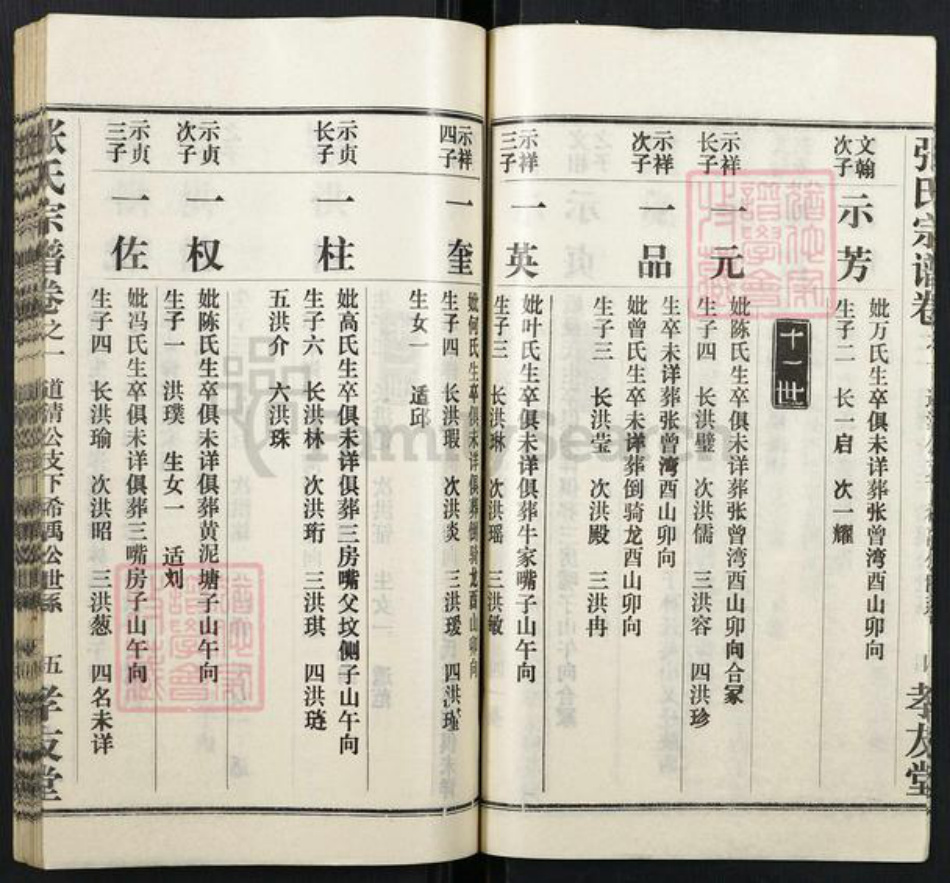 张氏宗谱卷
孝友堂
文翰
次子
示芳
妣万氏生卒俱未详葬张曾湾酉山卯向
生子二 长一启 次一耀
十一世
示祥
长子
一元
妣陈氏生卒俱未详葬张曾湾酉山卯向合冢
生子四 长洪璧 次洪儒 三洪容 四洪珍
示祥
次子
一品
生卒未详葬张曾湾酉山卯向
妣曾氏生卒未详葬倒骑龙酉山卯向
生子三 长洪莹 次洪殿 三洪冉
示祥
三子
一英
妣叶氏生卒俱未详俱葬牛家嘴子山午向
生子三 长洪琳 次洪瑶 三洪敏
示祥
四子
一奎
妣何氏生卒俱未详俱葬倒骑龙酉山卯向
生子四 长洪瑕 次洪炎 三洪瑷 四洪瑾
生女一 适邱
示贞
长子
一柱
妣高氏生卒俱未详俱葬三房嘴父坟侧子山午向
生子六 长洪林 次洪珩 三洪琪 四洪琏
五洪介 六洪珠
示贞
次子
一权
妣陈氏生卒俱未详俱葬黄泥塘子山午向
生子一 洪璞 生女一 适刘
示贞
三子
一佐
妣冯氏生卒俱未详俱葬三嘴房子山午向
生子四 长洪瑜 次洪昭 三洪葱 四名未详
张氏宗谱卷之一 道清公支下希禹公世系 五 孝友堂
FamilySearch